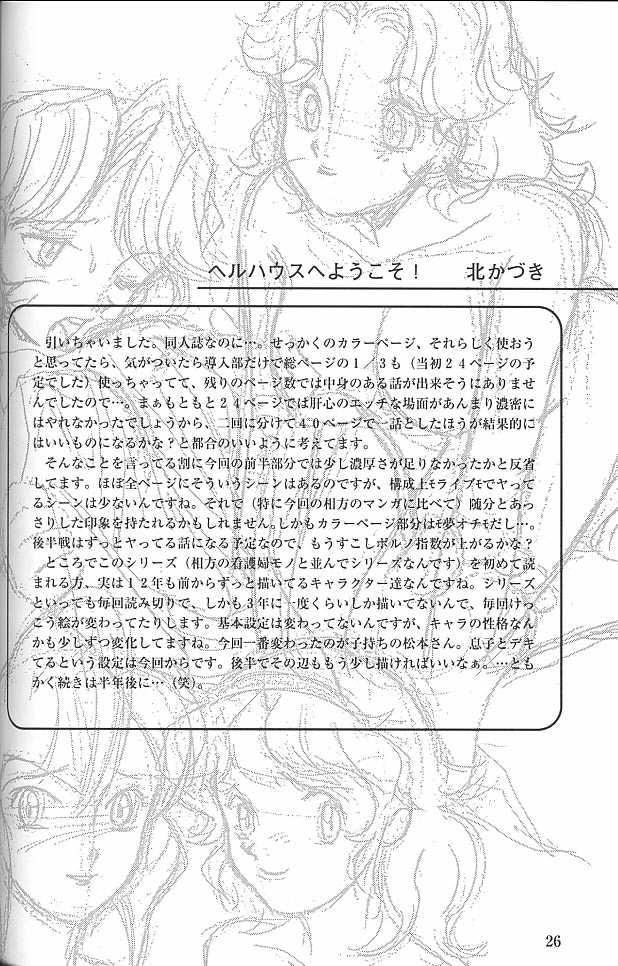 ヘルハウスへようこそ！　　北かづき
　引いちゃいました。同人誌なのに…。せっかくのカラーページ、それらしく使おう
と思ってたら、気がついたら導入部だけで総ページの１／３も（当初２４ページの予
定でした）使っちゃってて、残りのページ数では中身のある話が出来そうにありませ
んでしたので…。まぁもともと２４ページでは肝心のエッチな場面があんまり濃密に
はやれなかったでしょうから、二回に分けて４０ページで一話としたほうが結果的に
はいいものになるかな？と都合のいいように考えてます。
　そんなことを言ってる割に今回の前半部分では少し濃厚さが足りなかったかと反省
してます。ほぼ全ページにそういうシーンはあるのですが、構成上ﾓライブﾓでヤって
るシーンは少ないんですね。それで（特に今回の相方のマンガに比べて）随分とあっ
さりした印象を持たれるかもしれません。しかもカラーページ部分はﾓ夢オチﾓだし…。
後半戦はずっとヤってる話になる予定なので、もうすこしポルノ指数が上がるかな？
　ところでこのシリーズ（相方の看護婦モノと並んでシリーズなんです）を初めて読
まれる方、実は１２年も前からずっと描いてるキャラクター達なんですね。シリーズ
といっても毎回読み切りで、しかも３年に一度くらいしか描いてないんで、毎回けっ
こう絵が変わってたりします。基本設定は変わってないんですが、キャラの性格なん
かも少しずつ変化してますね。今回一番変わったのが子持ちの松本さん。息子とデキ
てるという設定は今回からです。後半でその辺ももう少し描ければいいなぁ。…とも
かく続きは半年後に…（笑）。
26